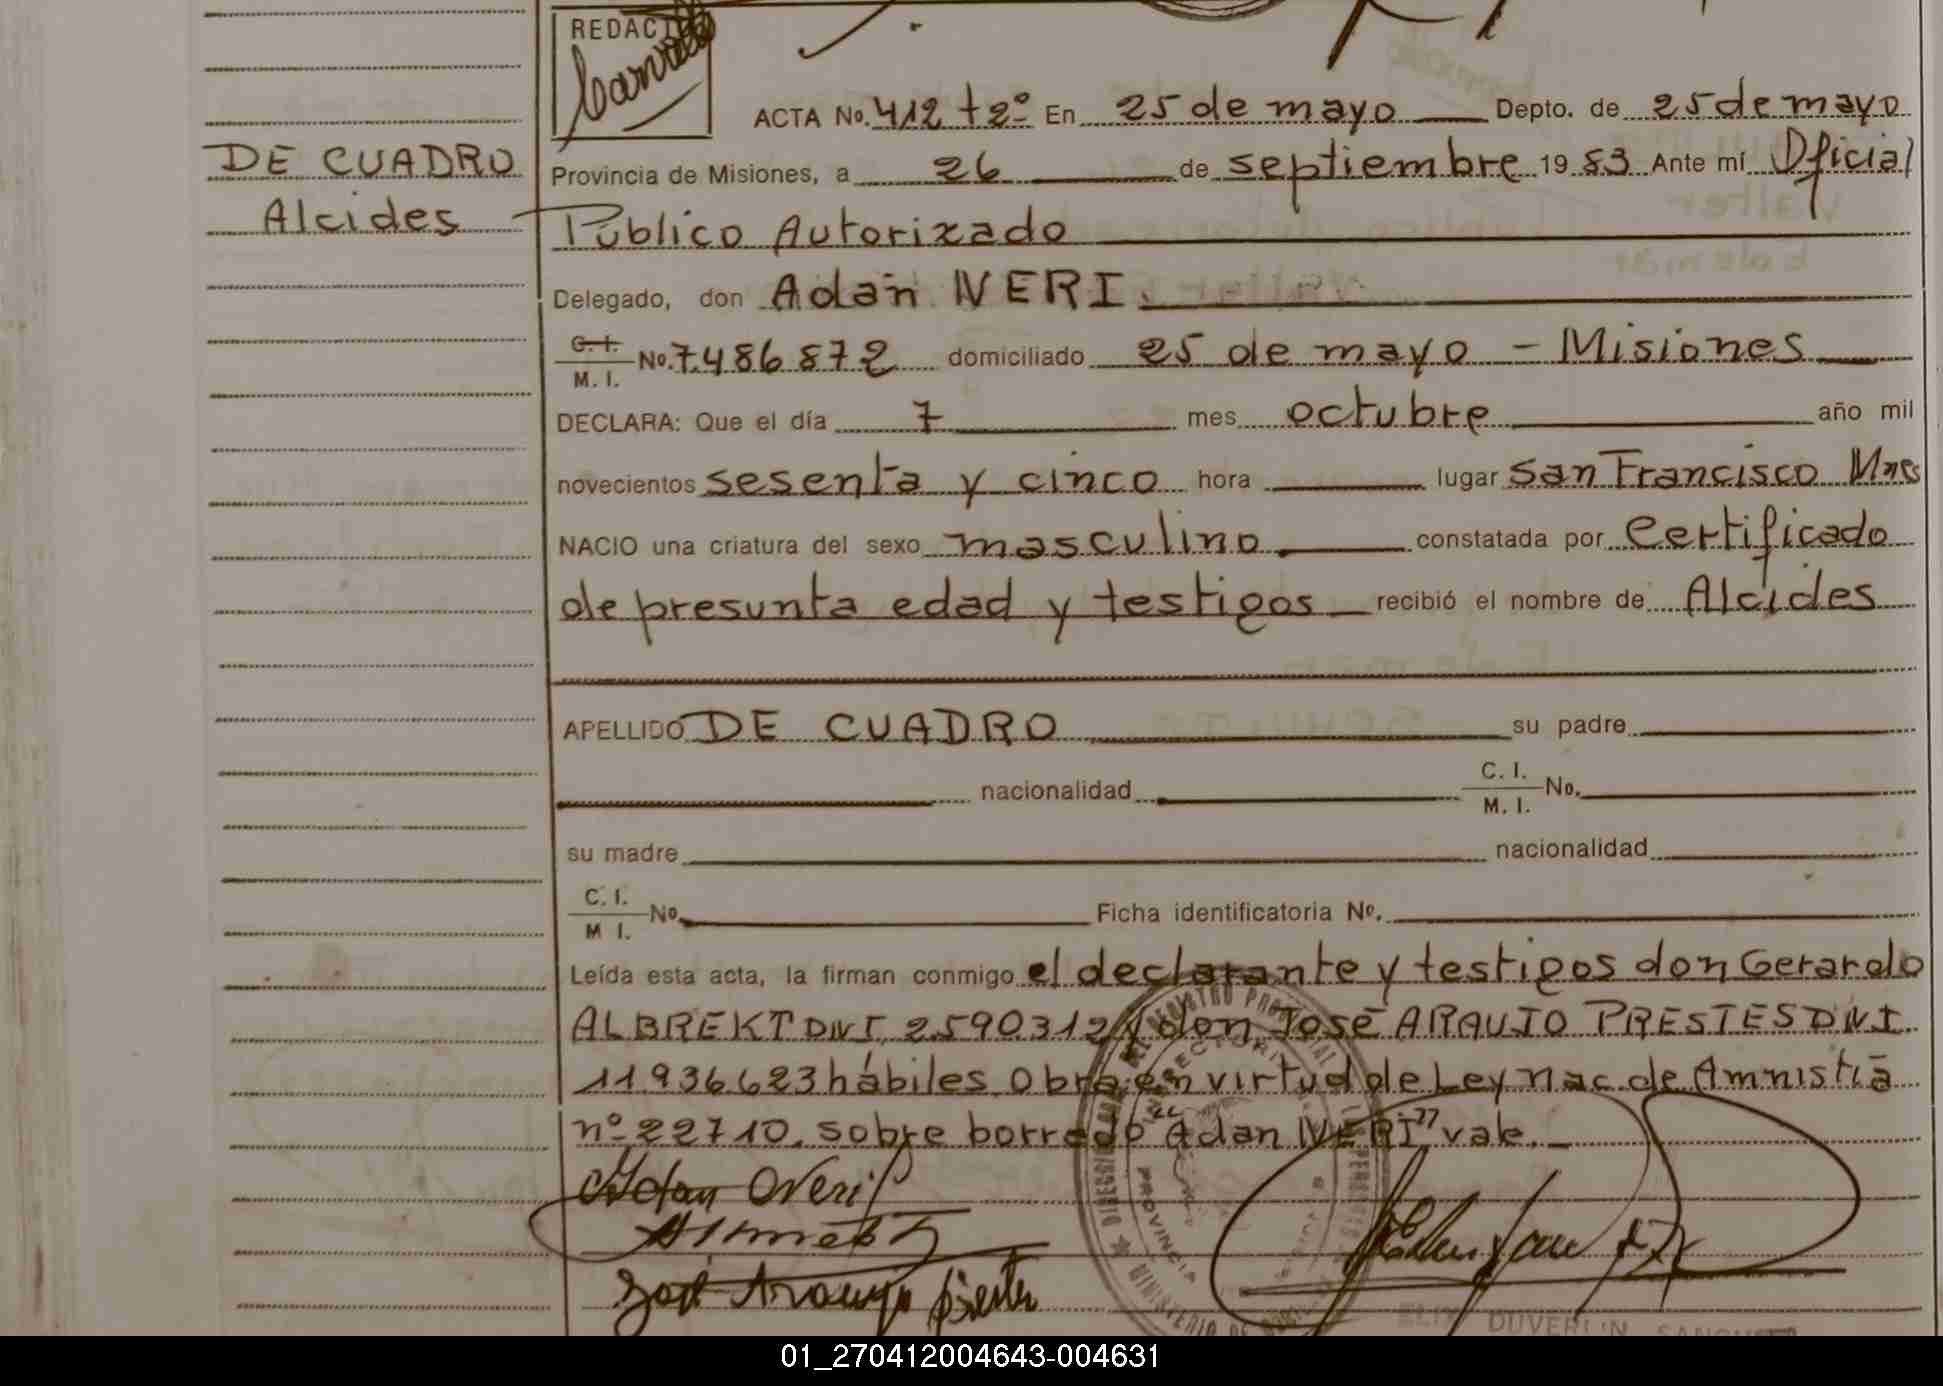 REDACTO
DE CUADRO
Alcides
ACTA No. 412 t 2º En 25 de mayo Depto. de 25 de mayo
Provincia de Misiones, a 26 de septiembre 19 83 Ante mí Oficial
Público Autorizado
Delegado, don Adán NERI.
C. I.
M. I. No. 7.486 872 domiciliado 25 de mayo - Misiones
DECLARA: Que el día 7 mes octubre año mil
novecientos sesenta y cinco hora lugar San Francisco Mnes
NACIO una criatura del sexo masculino constatada por Certificado
de presunta edad y testigos recibió el nombre de Alcides
APELLIDO DE CUADRO su padre
nacionalidad C. I.
M. I. No.
su madre nacionalidad
C. I.
M I. No. Ficha identificatoria No.
Leída esta acta, la firman conmigo el declarante y testigos don Gerardo
ALBREKT DNI 2.590.312 y don José ARAUJO PRESTES DNI
11936623 hábiles. Obra en virtud de Ley Nac. de Amnistía
nº 22710. sobre borrado "Adan NERI" vale.
Adan Neri
José Araujo
MINISTERIO DE
PROVINCIA
01_270412004643-004631